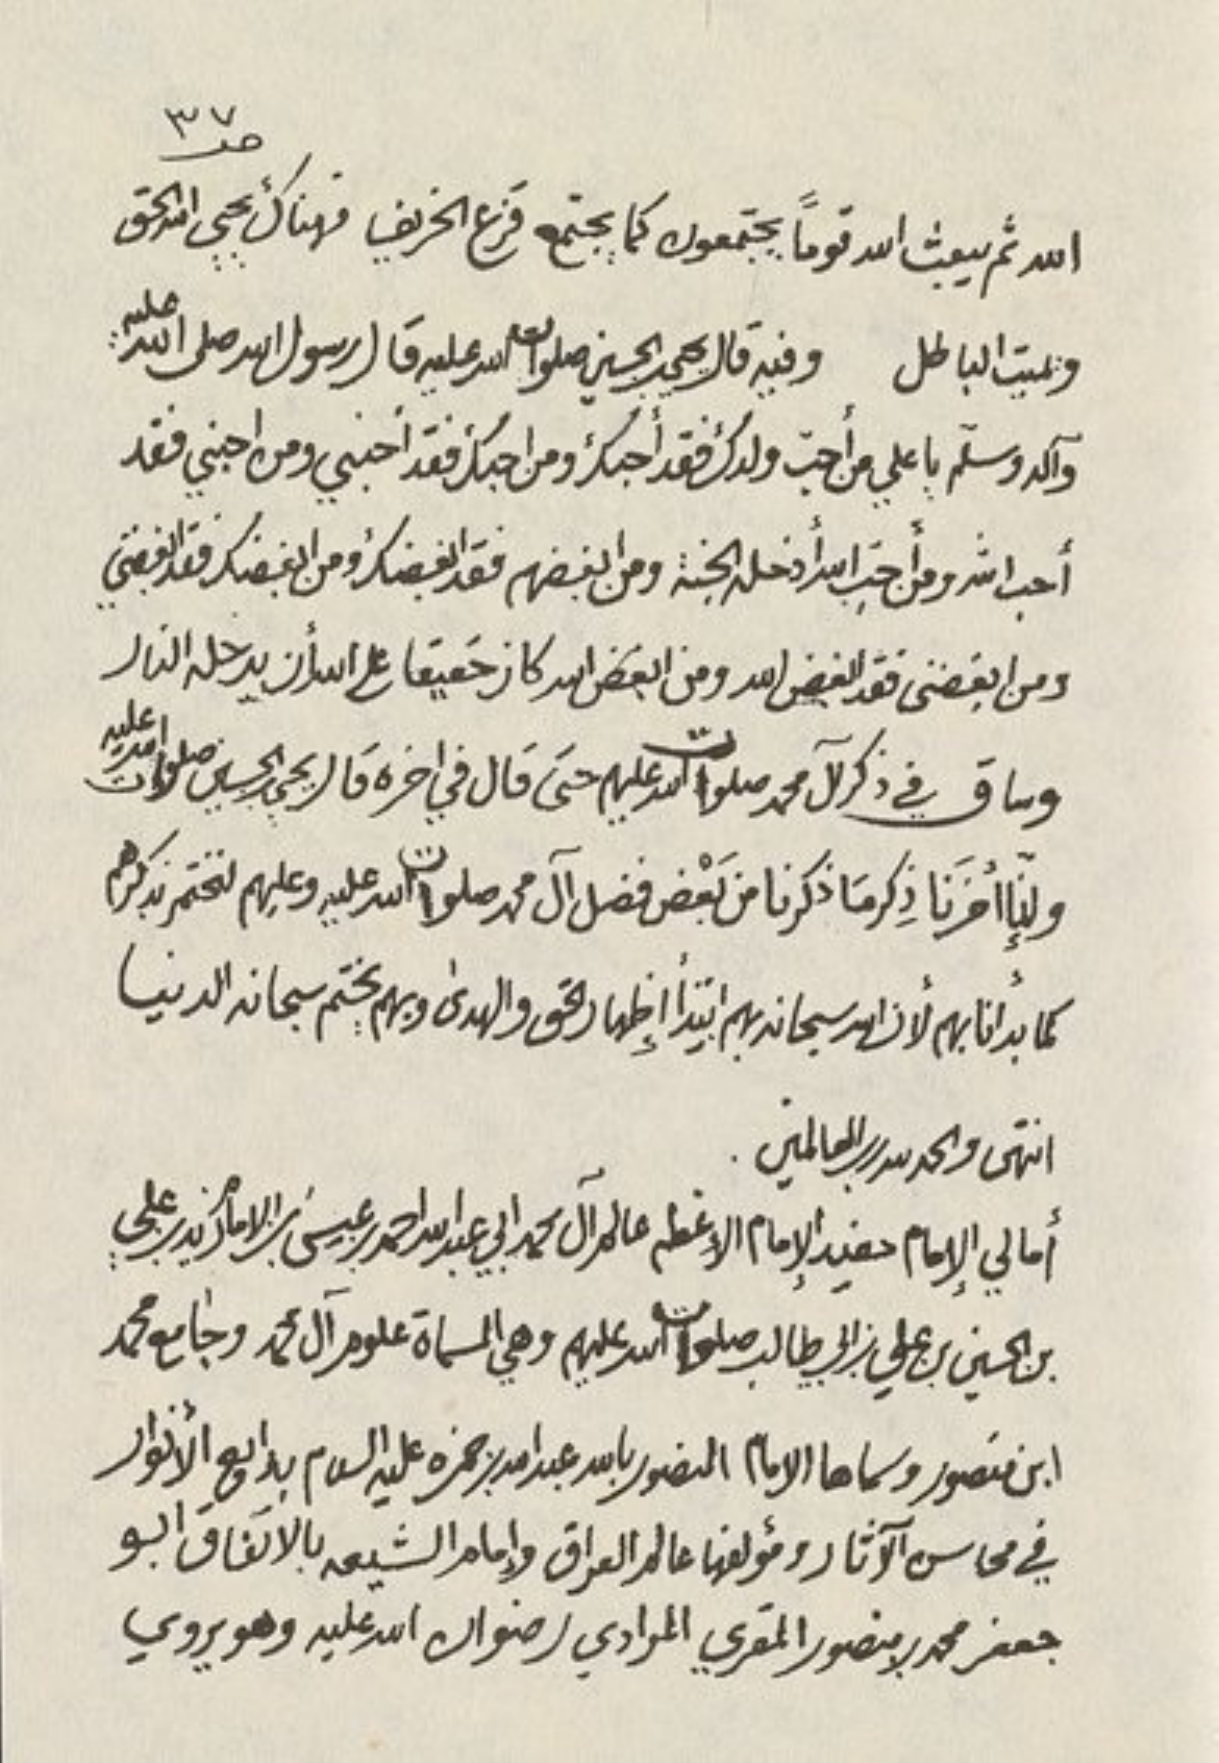 ٣٧
ص
الله ثم يبعث الله قوماً يجتمعون كما يجتمع قزع الخريف فهناك يحيي الله الحق
ويميت الباطل وفيه قال يحيى بن الحسين صلوات الله عليه قال رسول الله صلى الله عليه
وآله وسلّم يا علي من أحبّ ولدك فقد أحبك ومن احبك فقد أحبني ومن احبني فقد
أحب الله ومن أحب الله أدخله الجنة ومن ابغضهم فقد ابغضك ومن ابغضك فقد ابغضني
ومن ابغضني فقد ابغض الله ومن ابغض الله كان حقيقا على الله أن يدخله النار
وساق في ذكر آل محمد صلوات الله عليهم حتى قال في اخره قال يحيى بن الحسين صلوات الله عليه
وإنّا أخرنا ذكر ما ذكرنا من بَعْض فضل آل محمد صلوات الله عليه وعليهم لنختم بذكرهم
كما بدأنا بهم لأن الله سبحانه بهم ابتدأ إظهار الحق والهدى وبهم يختم سبحانه الدنيا
انتهى والحمد لله رب العالمين .
أمالي الإمام حفيد الإمام الاعظم عالم آل محمد ابي عبد الله احمد بن عيسى بن الإمام زيد بن علي
بن الحسين بن علي بن ابي طالب صلوات الله عليهم وهي المسماة علوم آل محمد وجامع محمد
ابن منصور وسماها الإمام المنصور بالله عبد الله بن حمزه عليه السلام بدائع الأنوار
في محاسن الآثار ومؤلفها عالم العراق وإمام الشيعه بالاتفاق ابو
جعفر محمد بن منصور المقري المرادي رضوان الله عليه وهو يروي